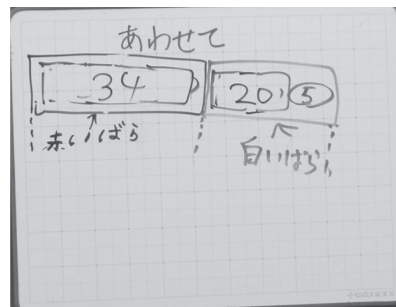 あわせて
34 20 5
赤いばら
白いばら